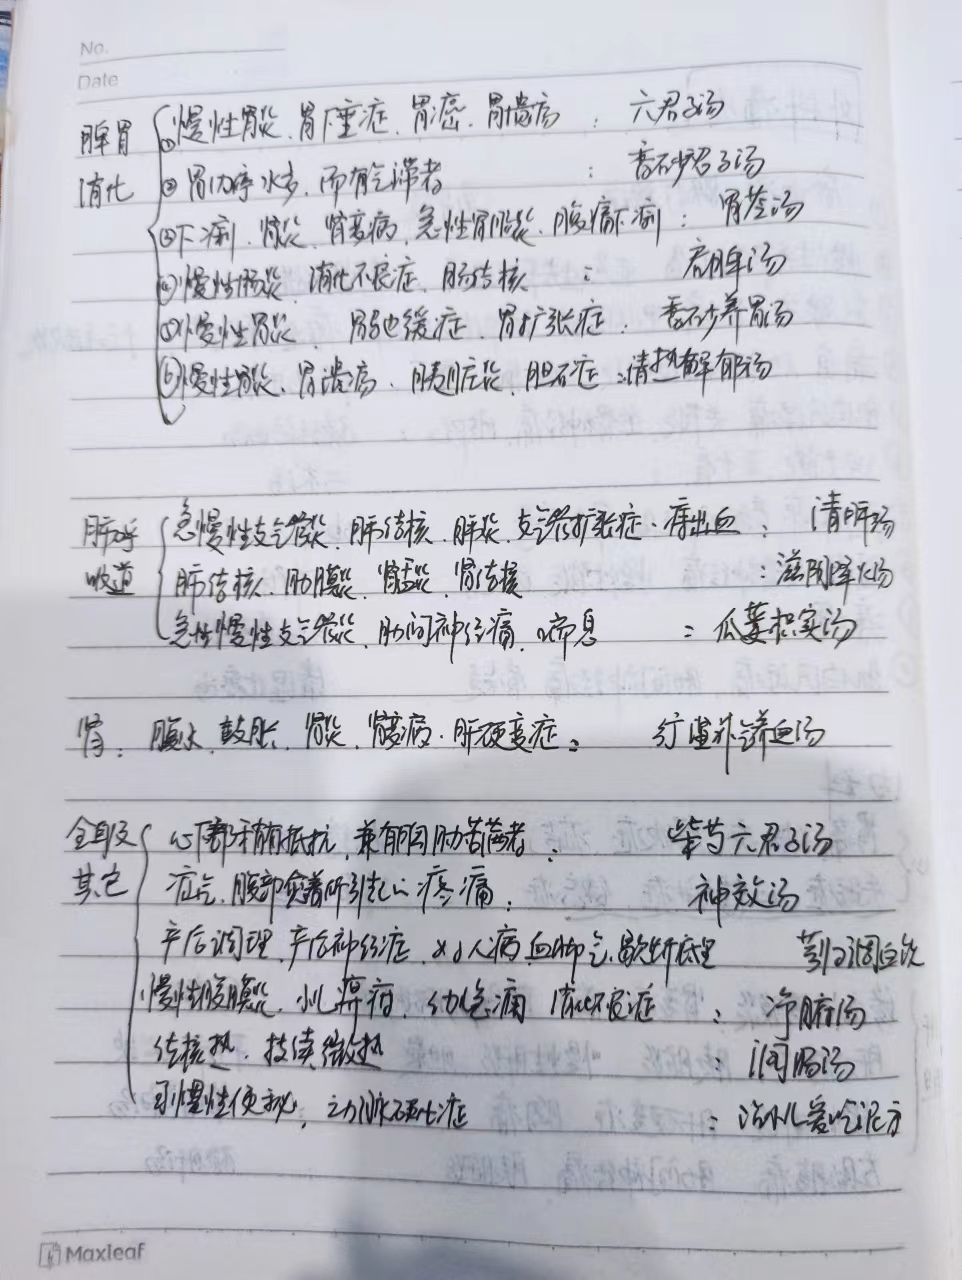 No.
Date
脾胃 ①慢性胃炎、胃下垂症、胃癌、胃溃疡：六君子汤
消化 ②胃内停水多，而有气滞者：香砂六君子汤
③下痢、肾炎、肾变病、急性胃肠炎、腹痛下痢：胃苓汤
④慢性肠炎、消化不良症、肠结核：启脾汤
⑤慢性胃炎、胃弛缓症、胃扩张症：香砂养胃汤
⑥慢性胃炎、胃溃疡、胰脏炎、胆石症：清热解郁汤
肺呼 急慢性支气管炎、肺结核、肺炎、支气管扩张症、痔出血：清肺汤
吸道 肺结核、肋膜炎、肾盂炎、肾结核：滋阴降火汤
急性慢性支气管炎、肋间神经痛、喘息：瓜蒌枳实汤
肾：腹水、鼓胀、肾炎、肾变病、肝硬变症：分消汤
全身及 心下部有抵抗，兼有胸肋苦满者：柴芍六君子汤
其它 疝气、腹部愈着所引起的疼痛：神效汤
产后调理、产后神经症、妇人病、血脚气、歇斯底里 芎归调血饮
慢性腹膜炎、小儿疳、消化不良症：净腑汤
结核热、持续微热
慢性便秘、动脉硬化症：润肠汤
治小儿爱吃泥方
Maxleaf